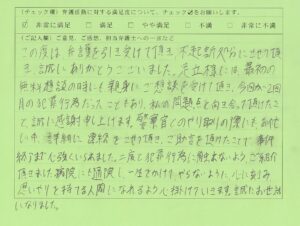 (チェック欄) 弁護活動に対する満足度について、チェック☑をお願いします。
☑ 非常に満足 □ 満足 □ やや満足 □ 不満 □ 非常に不満
(ご記入欄) ご意見、ご感想、担当弁護士への一言など
この度は、弁護を引き受けて頂き、不起訴処分にさせて頂
き、誠にありがとうございました。足立様には、最初の
無料相談の日に親身にご相談を受けて頂き、今回が2回
目の犯罪行為だったこともあり、私の問題点と向き合って頂けたこと
に誠に感謝申し上げます。警察官とのやり取りの際にもお忙し
い中、詳細に連絡をさせて頂き、ご助言を頂けたことで事件
終了まで心強くいられました。二度と犯罪行為に及ばないよう、ご紹介
頂きました病院にも通院し、一生をかけて、やらないように、心に刻み
思いやりを持てる人間になれるよう心掛けていきます。誠にお世話
になりました。